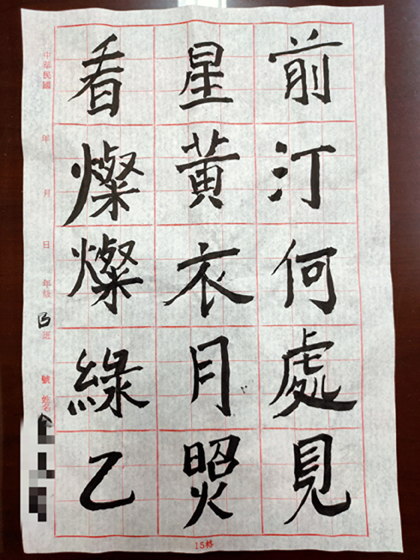 前汀何處見
星黃衣月煛
看燦燦綠乙
中華民國　年　月　日　年級 B 班　號　姓名
15格